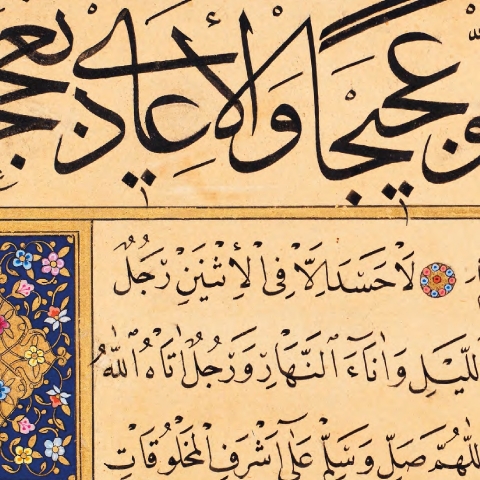 عجيجا والأعادي
لَا حَسَدَ اِلَّا فِى الْإِثْنَيْنِ رَجُلٌ
اللَّيْلِ وَاٰنَاءَ النَّهَارِ وَرَجُلٌ اٰتَاهُ اللّٰهُ
اللّٰهُمَّ صَلِّ وَسَلِّمْ عَلٰى اَشْرَفِ الْمَخْلُوقَاتِ